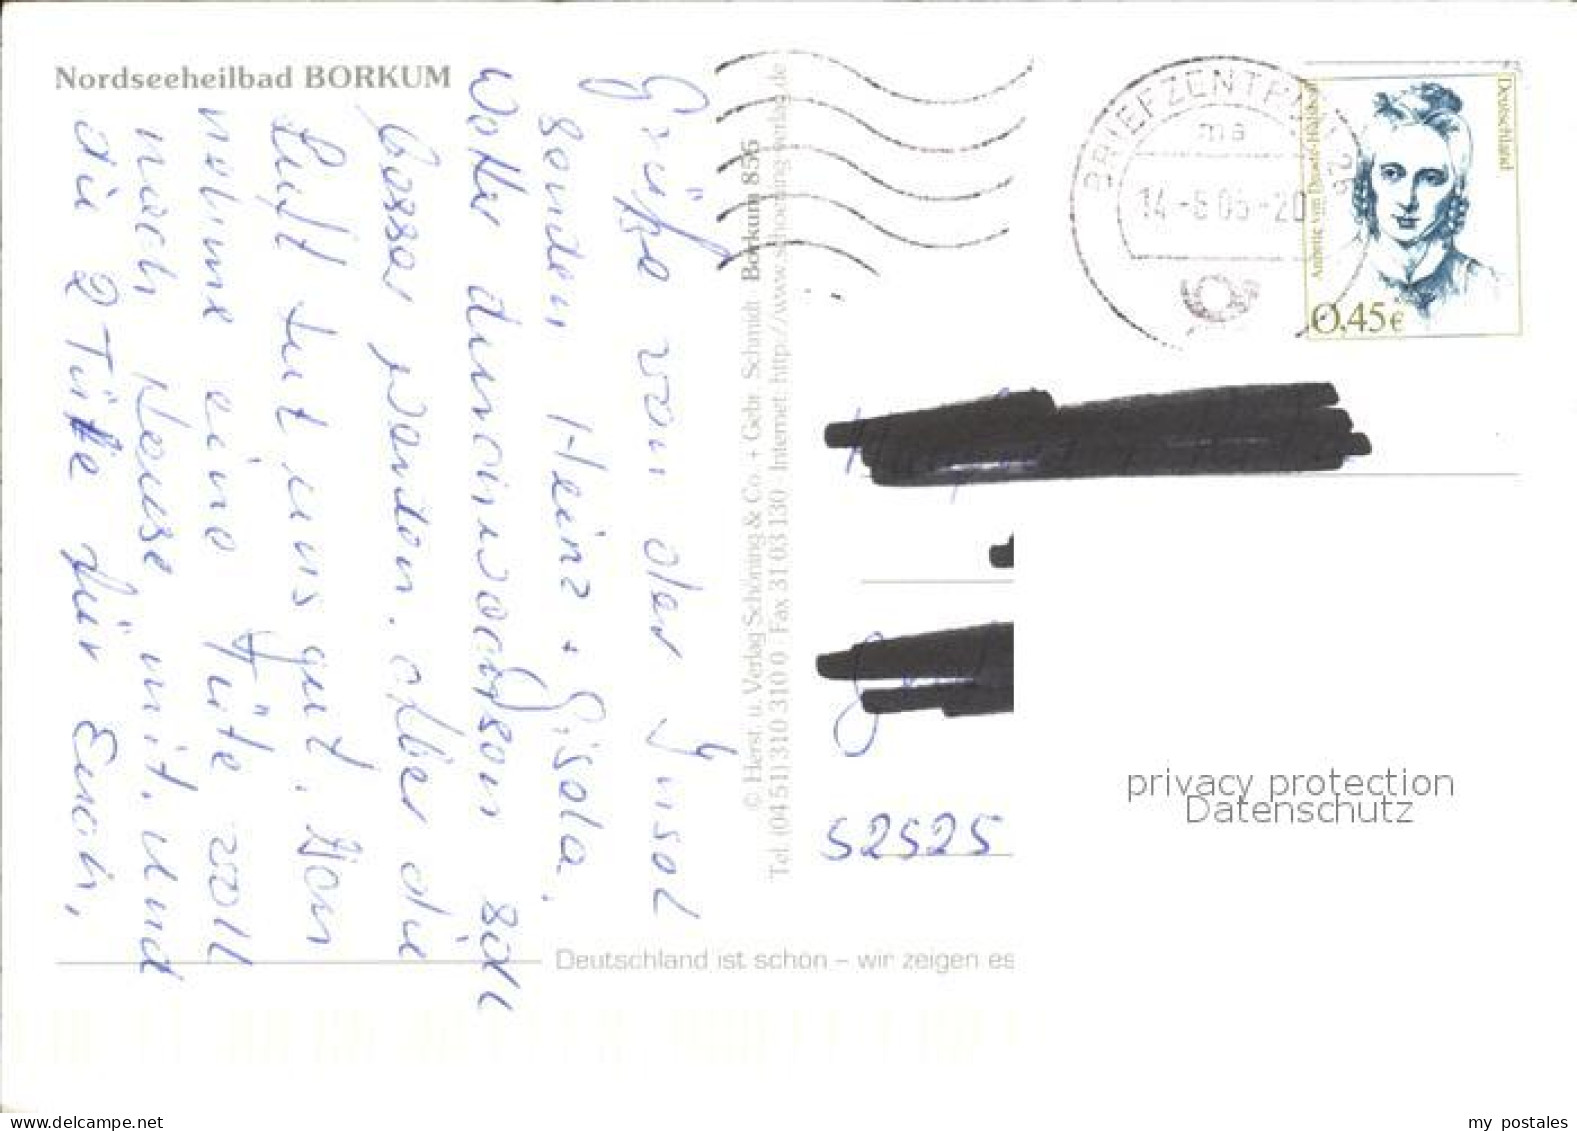 Nordseeheilbad BORKUM
Grüße von der Insel
senden Heinz + Gisela.
Wetter durchwachsen soll
besser werden. Aber die
Luft tut uns gut. Von
nehme eine Tüte voll
nach Hause mit. Und
die 2 Tüte für Euch.
© Herst. u. Verlag Schöning & Co. + Gebr. Schmidt Borkum 855
Tel. (04 51) 310 310 0 · Fax 31 03 130 · Internet: http://www.schoening-verlag.de
BRIEFZENTRUM 26
ma
14.-6.05-20
Deutschland
Annette von Droste-Hülshoff
0,45€
52525
privacy protection
Datenschutz
Deutschland ist schön – wir zeigen es
my postales